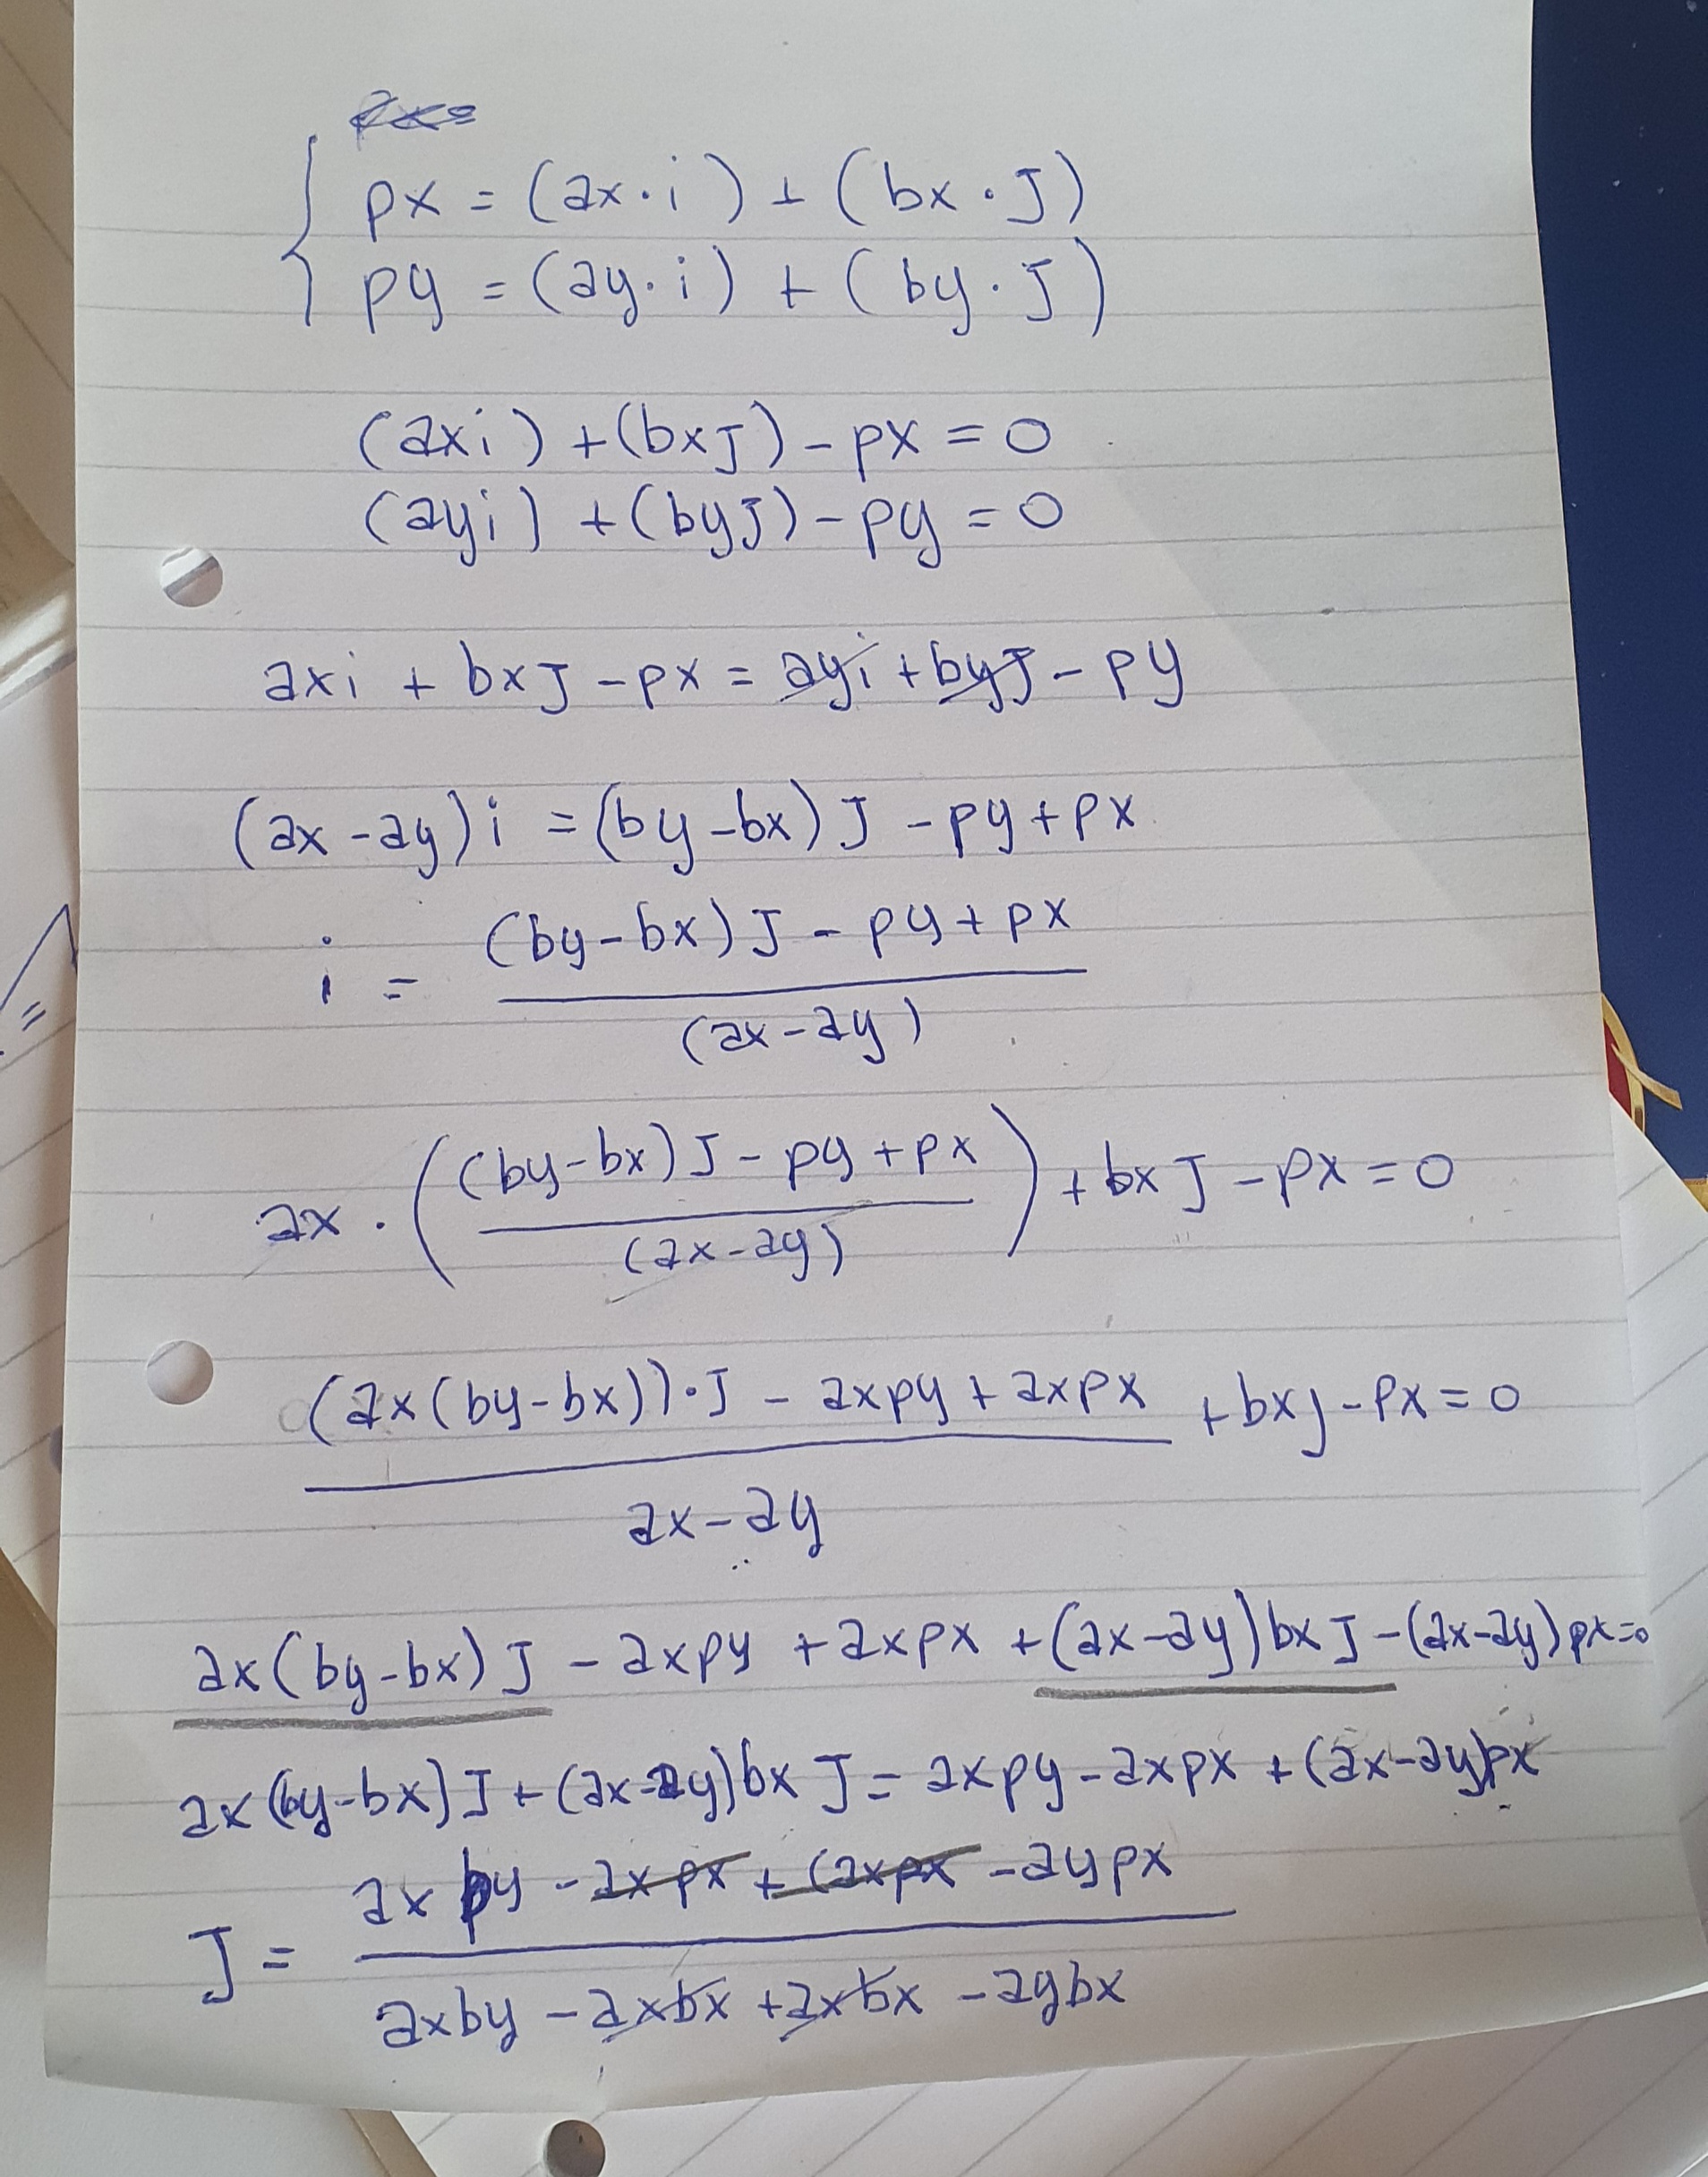 px = (ax · i) + (bx · J)
py = (ay · i) + (by · J)
(axi) + (bxJ) - px = 0
(ayi) + (byJ) - py = 0
axi + bxJ - px = ayi + byJ - py
(ax - ay) i = (by - bx) J - py + px
(by - bx) J - py + px
i =
(ax - ay)
ax · ( (by - bx) J - py + px ) + bx J - px = 0
(ax - ay)
(ax (by - bx)) · J - axpy + axpx + bxj - px = 0
ax - ay
ax (by - bx) J - axpy + axpx + (ax - ay) bx J - (ax - ay) px = 0
ax (by - bx) J + (ax - ay) bx J = axpy - axpx + (ax - ay) px
ax py - ax px + (axpx - aypx
J =
axby - axbx + axbx - aybx
=